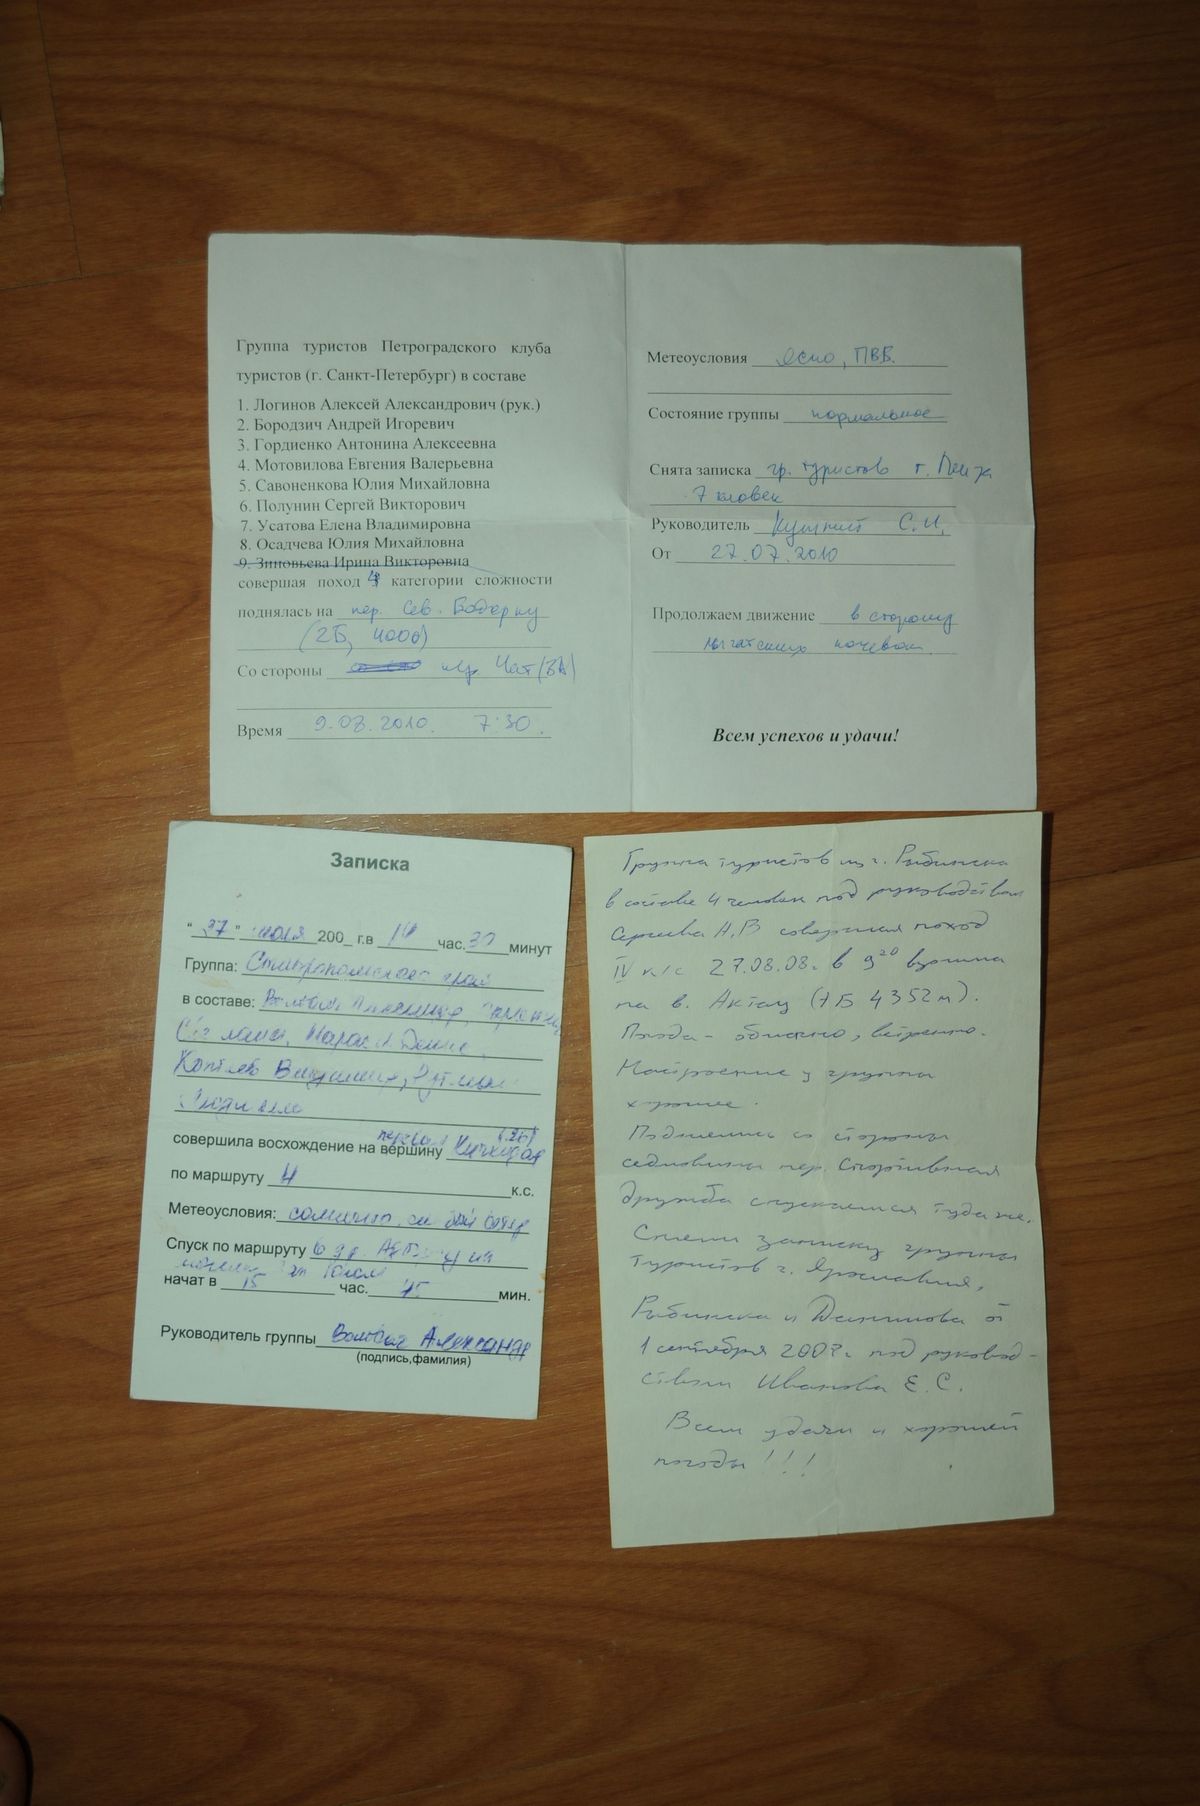 Группа туристов Петроградского клуба
туристов (г. Санкт-Петербург) в составе
1. Логинов Алексей Александрович (рук.)
2. Бородзич Андрей Игоревич
3. Гордиенко Антонина Алексеевна
4. Мотовилова Евгения Валерьевна
5. Савоненкова Юлия Михайловна
6. Полунин Сергей Викторович
7. Усатова Елена Владимировна
8. Осадчева Юлия Михайловна
9. Зиновьева Ирина Викторовна
совершая поход 4 категории сложности
поднялась на пер. Сев. Бодорку
(2Б, 4000)
Со стороны Чат
Время 9.08.2010. 7:30.
Метеоусловия Ясно, ПВБ.
Состояние группы нормальное
Снята записка гр. туристов г. Пенза
7 человек
Руководитель С.И.
От 27.07.2010
Продолжаем движение в сторону
ночевок.
Всем успехов и удачи!
Записка
" 27 " июля 200_ г.в 14 час. 30 минут
Группа: край
в составе:
Денис
совершила восхождение на вершину
перевал (2Б)
по маршруту 4 к.с.
Метеоусловия: солнечно,
Спуск по маршруту в др.
начат в 15 час. 45 мин.
Руководитель группы Александр
(подпись,фамилия)
Группа туристов из г. Рыбинска
в составе 4 человек под руководством
Сергеева А.В совершая поход
IV к/с 27.08.08г. в 9²⁰ взошла
на в. Актау (1Б 4352м).
Погода - облачно, ветрено.
Настроение у группы
хорошее.
Поднялись со стороны
седловины пер. Спортивная
дружба спускаемся туда же.
Сняли записку группы
туристов г. Ярославля,
Рыбинска и Данилова от
1 сентября 2007г. под руковод-
ством Иванова Е.С.
Всем удачи и хорошей
погоды!!!